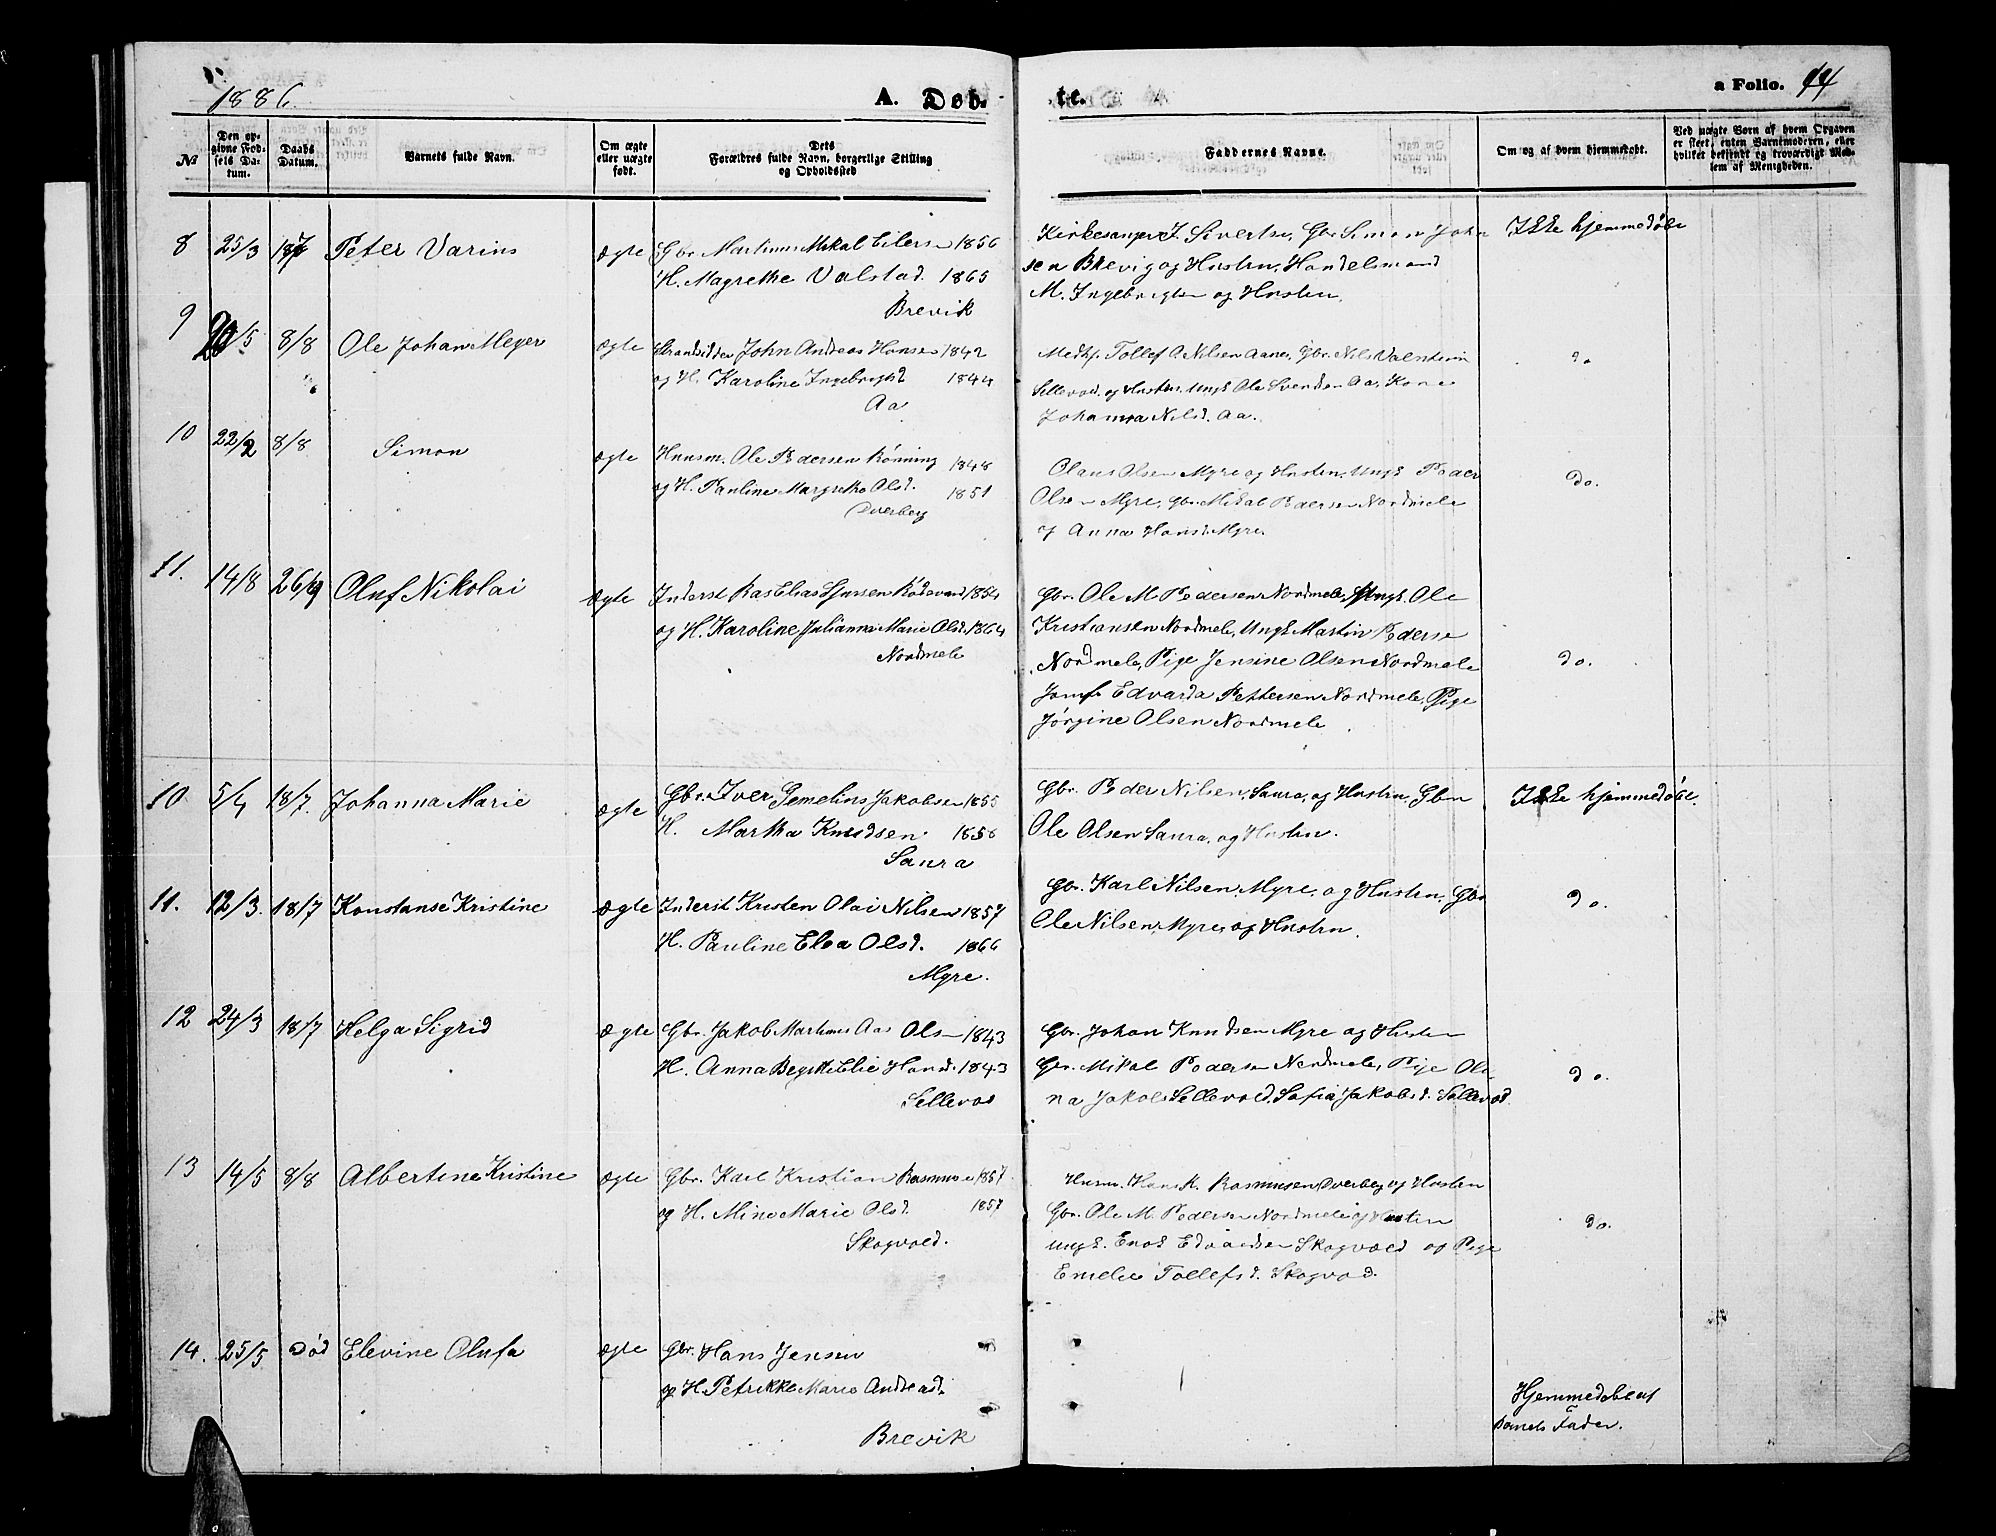 1886. A. Døb- te. a Folio. 14
№ Den op-givne Fød-sels Da-tum. Daabs Datum. Barnets fulde Navn. Om ægte eller uægte født. Dets Forældres fulde Navn, borgerlige Stilling og Opholdssted Faddernes Navne. Om og af hvem hjemmedøbt. Ved uægte Børn af hvem Opgaven er skeet, enten Barnemoderen, eller hvilket bekjendt og troværdigt Med-lem af Menigheden.
8 25/3 18/7 Peter Varius ægte Gbr. Martinus Mikal Eilersen 1856
H. Magrethe Valstad. 1865
Brevik
Kirkesanger J. Sivertsen, Gbr. Simon John
sen Brevig og Hustru, Handelsmand
M. Ingebrigtsen og Hustru.
Ikke hjemmedøbt
9 20/5 8/8 Ole Johan Meyer ægte Strandsidder John Andreas Hansen 1842
og H. Karoline Ingebrigtsd 1844
Aa
Medhj. Tollef A Nilsen Aanes, Gbr. Nils Valentin
Sellevold. og Hustru, Ungk Ole Svendsen Aa, Kone
Johanna Nilsd. Aa.
do
10 22/2 8/8 Simon ægte Huusm. Ole Pedersen Rönning 1848
og H. Pauline Margrethe Olsd. 1851
Dverberg
Claus Olsen Myre og Hustru, Ungk Peder
Olsen Myre, Gbr. Mikal Pedersen Nordmele
og Anna Hansd. Myre.
do.
11. 14/8 26/9 Oluf Nikolai ægte Inderst Ras Elias Sjursen Rödevand 1854
og H. Karoline Julianna Marie Olsd. 1864
Nordmele
Gbr. Ole M. Pedersen Nordmele, Ungk. Ole
Kristiansen Nordmele, Ungk Martin Pederse
Nordmele, Pige Jensine Olsen Nordmele
Jomf. Edvarda Pettersen Nordmele, Pige
Jörgine Olsen Nordmele
do.
10 5/4 18/7. Johanna Marie ægte Gbr. Iver Gemelius Jakobsen 1855
H. Martha Knudsen 1856
Saura
Gbr. Peder Nilsen, Saura, og Hustru, Gbr
Ole Olsen Saura, og Hustru.
Ikke hjemmedøbt.
11. 12/3. 18/7 Konstanse Kristine ægte Inderst Kristen Olai Nilsen 1857
H. Pauline Elea Olsd. 1866
Myre.
Gbr. Karl Nilsen, Myre, og Hustru, Gbr
Ole Nilsen, Myre, og Hustru.
do.
12 24/3 18/7 Helga Sigrid ægte Gbr. Jakob Martinus Aas Olsen 1843
H. Anna Begitte Elie Hansd. 1843
Sellevod
Gbr. Johan Knudsen Myre og Hustru
Gbr. Mikal Pedersen Nordmele, Pige Oli
na Jakobs Sellevold, Sofia Jakobsd. Sellevod.
do.
13 14/5 8/8 Albertine Kristine ægte Gbr. Karl Kristian Rasmusen 1857
og H. Mine Marie Olsd. 1857
Skogvold.
Husm. Hans K. Rasmussen Dverberg og Hustru
Gbr. Ole M. Pedersen Nordmele og Hustru
Ungk. Enok Edvardsen Skogvold og Pige
Emelie Tollefsd. Skogvod.
do.
14. 25/5 Död Elevine Olufa ægte Gbr. Hans Jensen
og H. Petrikke Marie Andreasd.
Brevik
Hjemmedøbt af
Barnets Fader.